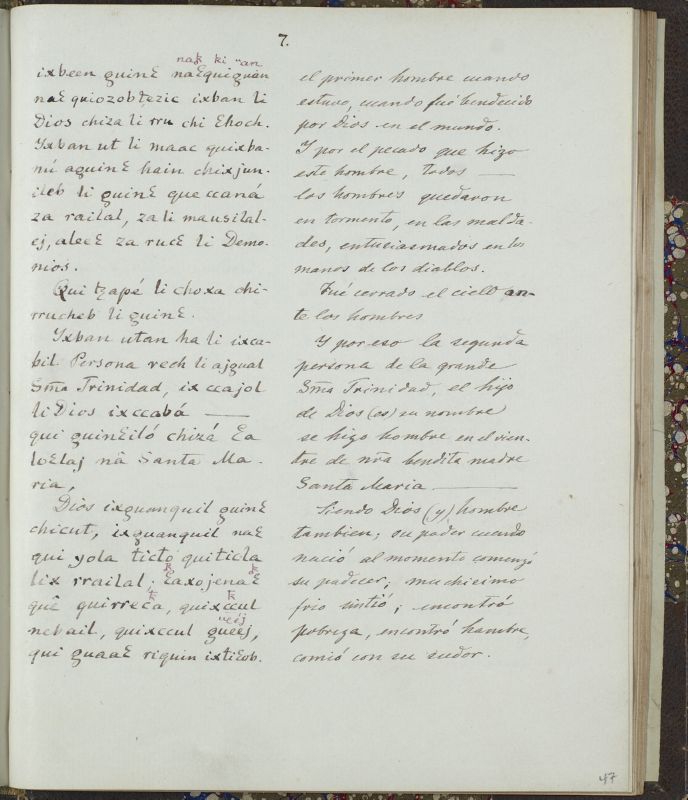 7.
nak ki -an
ixbeen guinƐ naƐquiguan
naƐ quiozobtezic ixban li
Dios chiza li rru chi Ɛhoch.
Yxban ut li maac quixba-
nú aguinƐ hain chixjun-
ileb li guinƐ que ccaná
za railal, za li mausilal-
ej, aleeƐ za rucƐ li Demo-
nios.
Qui tzapé li choxa chi-
rrucheb li guinƐ.
Yxban utan ha li ixca-
bil Persona rech li ajgual
Sma Trinidad, ix ccajol
li Dios ixccabá ——
qui guinƐiló chizá Ɛa
loƐlaj nâ Santa Ma-
ria,
Dios ixguanquil guinƐ
chicut, ixguanquil naƐ
qui yola ticto quiticla
lix rrailal; ƐaxojenaƐ
k k
quê quirreca, quixccul
k k
nebail, quixccul gueej,
"eej
qui guaaƐ riquin ixtiƐob.
el primer hombre cuando
estuvo, cuando fué bendecido
por Dios en el mundo.
Y por el pecado que hizo
este hombre, todos ——
los hombres quedaron
en tormento, en las malda-
des, entusiasmados en los
manos de los diablos.
Fué cerrado el cielo an-
te los hombres
Y por eso la segunda
persona de la grande
Sma Trinidad, el hijo
de Dios (es) su nombre
se hizo hombre en el vien-
tre de nra bendita madre
Santa Maria ——
Siendo Dios (y) hombre
tambien; su poder cuando
nació al momento comenzó
su padecer; muchisimo
frio sintió; encontró
pobreza, encontró hambre,
comió con su sudor.
47